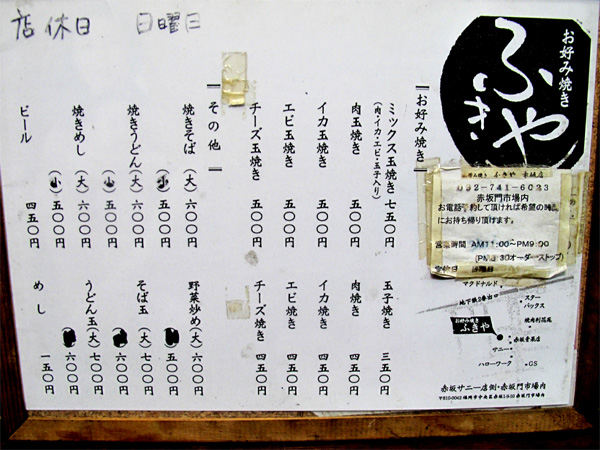 店休日 日曜日
お好み焼き
ふきや
お好み焼き
ミックス玉焼き 七五〇円
(肉・イカ・エビ・玉子入り)
肉玉焼き 五〇〇円
イカ玉焼き 五〇〇円
エビ玉焼き 五〇〇円
チーズ玉焼き 五〇〇円
玉子焼き 三五〇円
肉焼き 四五〇円
イカ焼き 四五〇円
エビ焼き 四五〇円
チーズ焼き 四五〇円
その他
焼きそば(大) 六〇〇円
(小) 五〇〇円
焼きうどん(大) 六〇〇円
(小) 五〇〇円
焼きめし(大) 六〇〇円
(小) 五〇〇円
ビール 四五〇円
野菜炒め(大) 六〇〇円
五〇〇円
そば玉(大) 七〇〇円
六〇〇円
うどん玉(大) 七〇〇円
六〇〇円
めし 一五〇円
ふきや 赤坂店
092-741-6023
赤坂門市場内
お電話 約して頂ければ希望の時
にお持ち帰り頂けます。
営業時間 AM11:00〜PM9:00
30オーダーストップ)
定休日 日曜日
マクドナルド
地下鉄2番出口
スターバックス
焼肉利花苑
お好み焼き
ふきや
赤坂音楽店
サニー
ハローワーク
GS
赤坂サニー店側・赤坂門市場内
〒810-0042 福岡市中央区赤坂1-9-50 赤坂門市場内